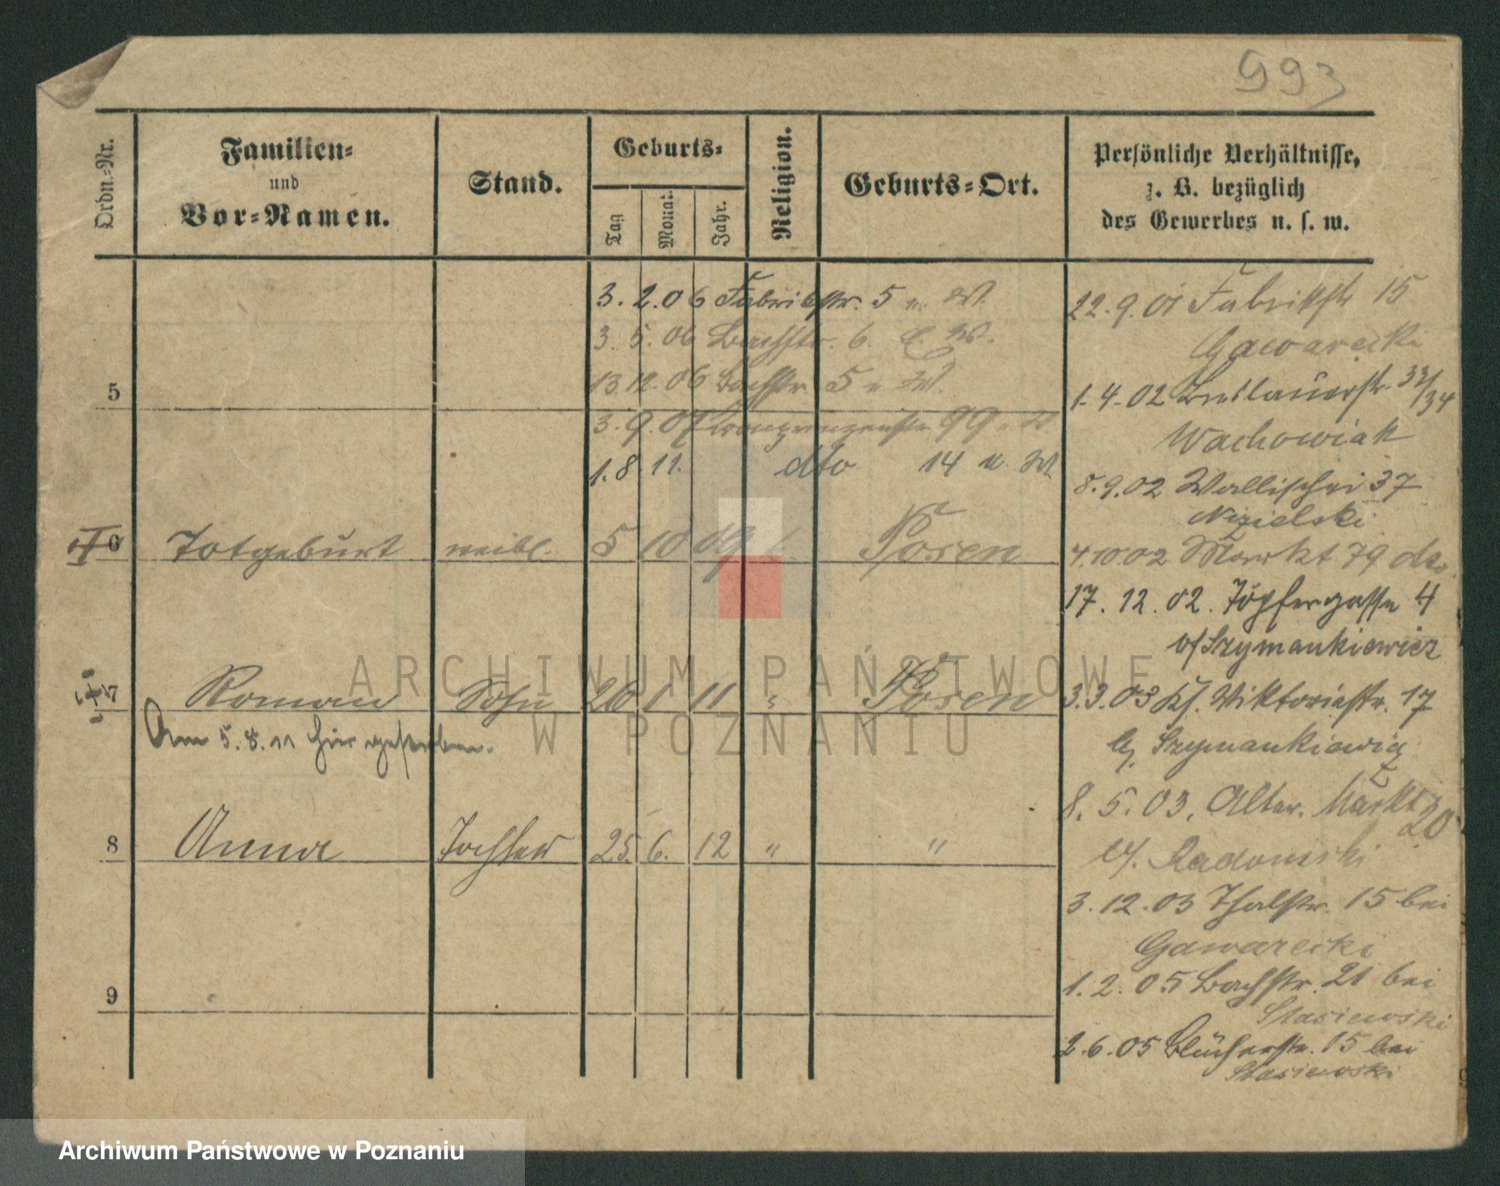 993
Ordn.-Nr.
Familien-
und
Vor-Namen.
Stand.
Geburts-
Tag
Monat.
Jahr.
Religion.
Geburts-Ort.
Persönliche Verhältnisse,
z. B. bezüglich
des Gewerbes u. s. w.
3. 2. 06 Fabrikstr. 5 u. W.
3. 5. 06 Bachstr. 6. W.
13. 12. 06 Bachstr. 5 u. W.
5
3. 9. 07 Kronprinzenstr. 99 u. W.
1. 8. 11. dto 14 u. W.
6 Totgeburt weibl. 5 10 09 Posen
7 Roman Sohn 26 1 11 " Posen
Am 5.8.11 hier gestorben.
8 Anna Tochter 25. 6. 12 " "
9
22. 9. 01 Fabrikstr 15
Gawarecki
1. 4. 02 Breslauerstr. 33/34
Wachowiak
8. 9. 02 Wallischei 37
Nizielski
4. 10 02 Markt 79 dto
17. 12. 02. Töpfergasse 4
b/ Szymankiewicz
3. 3. 03 Viktoriastr. 17
b/ Szymankiewicz
8. 5. 03. Alter. Markt 20
b/. Radomski
3. 12. 03 Thalstr. 15 bei
Gawarecki
1. 2. 05 Bachstr. 21 bei
Stasiewski
2. 6. 05 Blücherstr. 15 bei
Stasiewski
ARCHIWUM PAŃSTWOWE
W POZNANIU
Archiwum Państwowe w Poznaniu